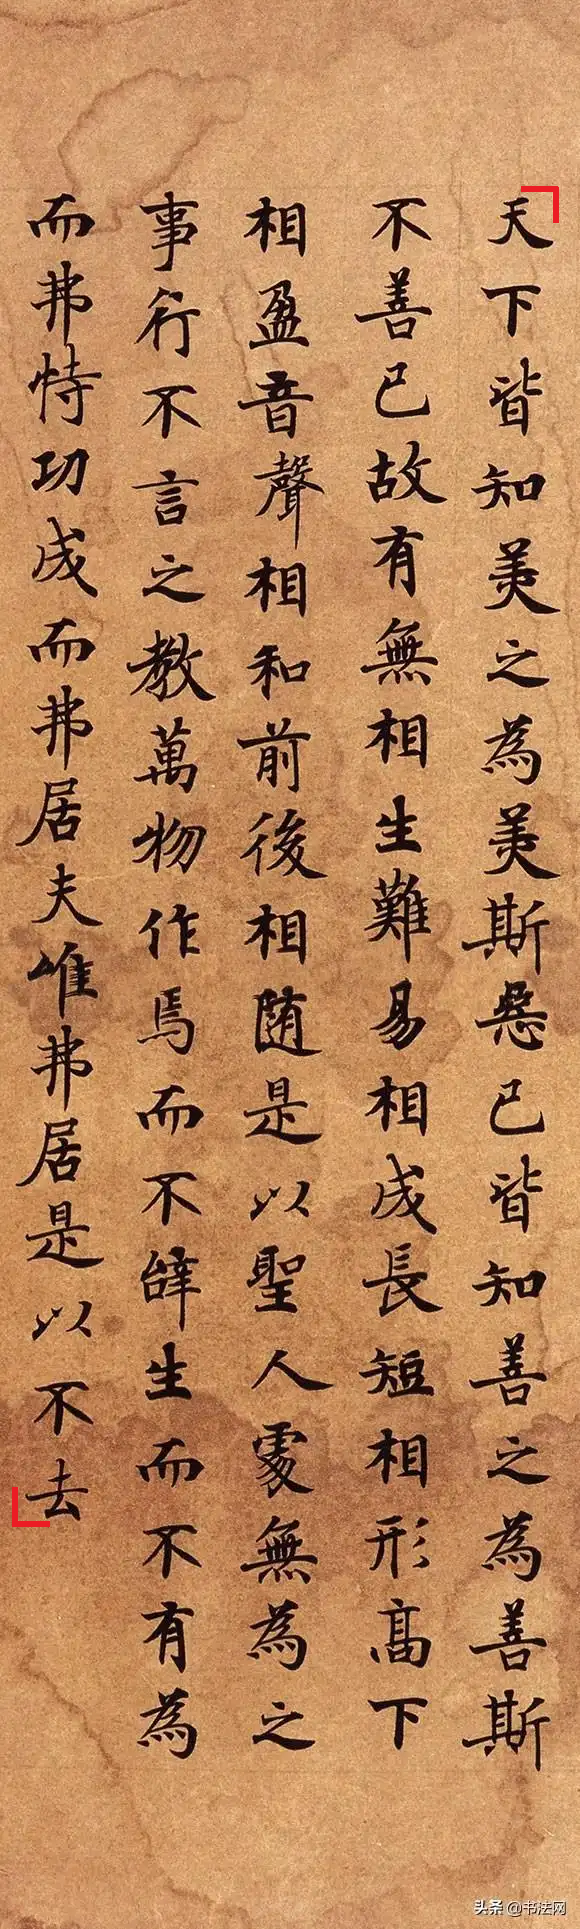 天下皆知美之為美斯惡已皆知善之為善斯
不善已故有無相生難易相成長短相形高下
相盈音聲相和前後相随是以聖人處無為之
事行不言之教萬物作焉而不辝生而不有為
而弗恃功成而弗居夫唯弗居是以不去
头条 @书法网